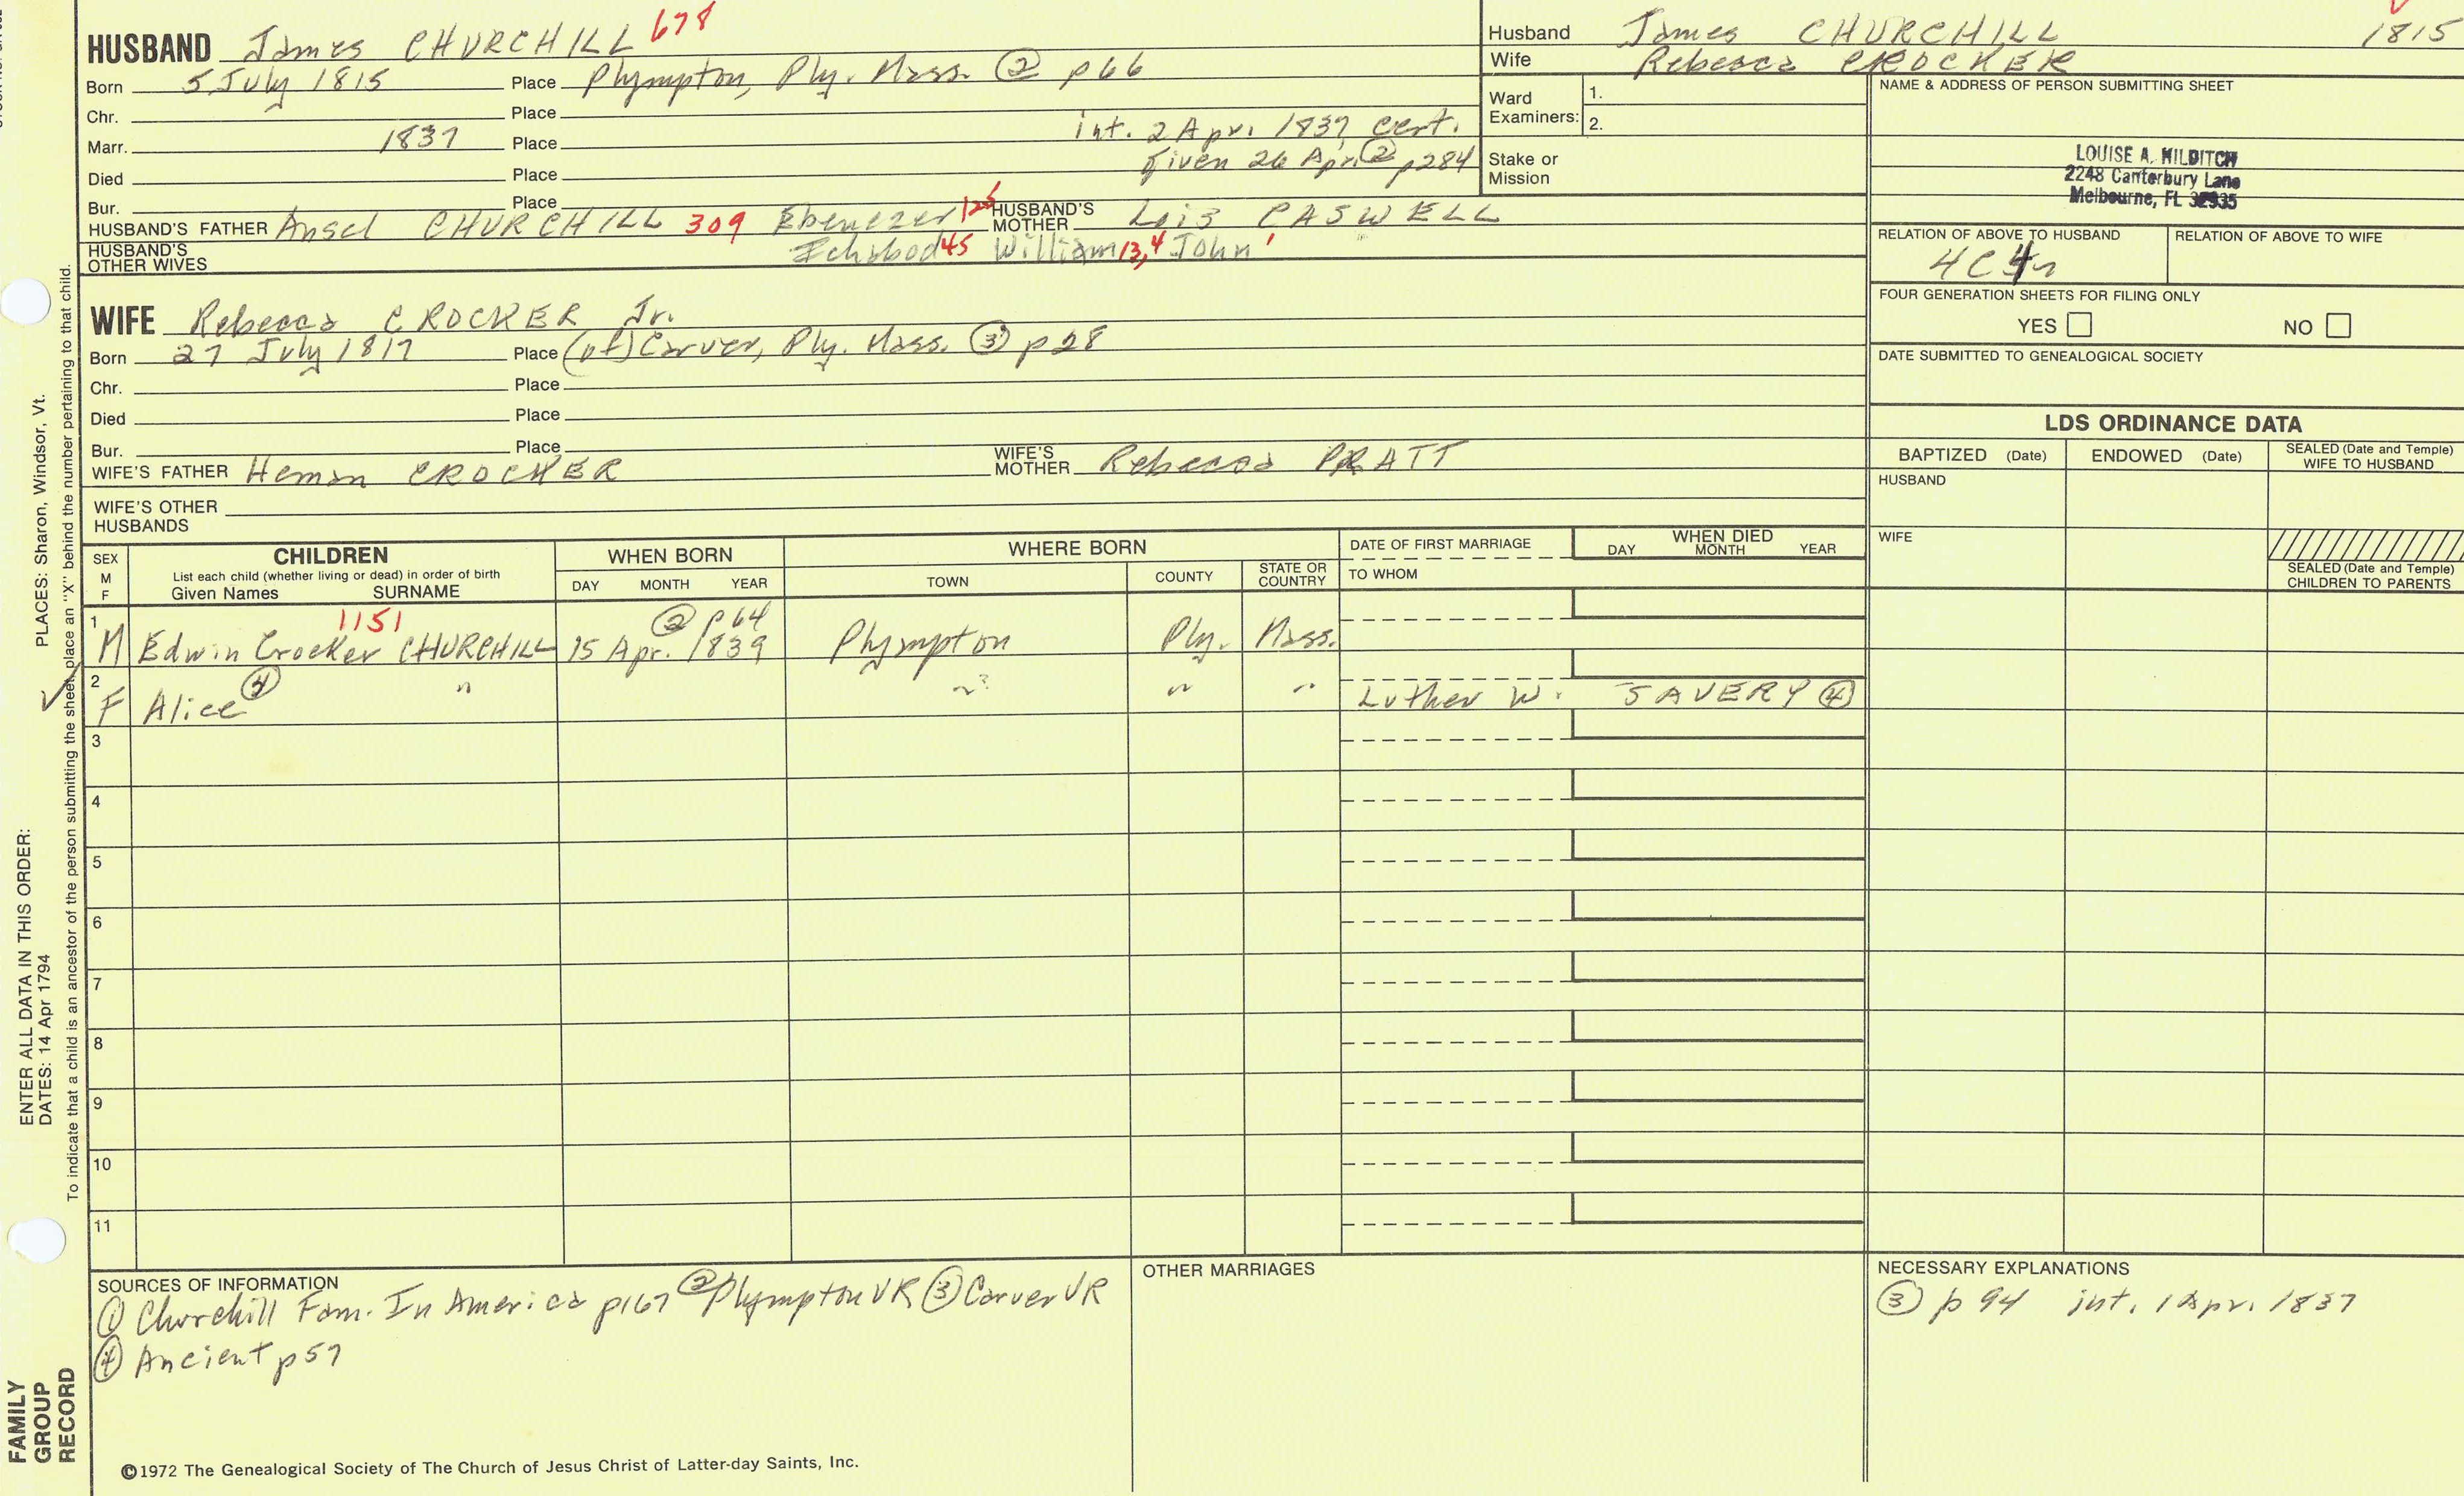 HUSBAND James CHURCHILL 678
Born 5 July 1815 Place Plympton, Ply. Mass. ② p66
Chr. Place
Marr. 1837 Place int. 2 Apr. 1837 cert.
given 26 Apr. ② p284
Died Place
Bur. Place
HUSBAND'S FATHER Ansel CHURCHILL 309 Ebenezer 125 HUSBAND'S MOTHER Lois CASWELL
HUSBAND'S OTHER WIVES Ichabod 45 William 13,4 John 1
Husband James CHURCHILL 1815
Wife Rebecca CROCKER
Ward Examiners: 1.
2.
Stake or Mission
NAME & ADDRESS OF PERSON SUBMITTING SHEET
LOUISE A. HILDITCH
2248 Canterbury Lane
Melbourne, FL 32935
RELATION OF ABOVE TO HUSBAND RELATION OF ABOVE TO WIFE
4C4r
FOUR GENERATION SHEETS FOR FILING ONLY
YES NO
DATE SUBMITTED TO GENEALOGICAL SOCIETY
WIFE Rebecca CROCKER Jr.
Born 27 July 1817 Place (of) Carver, Ply. Mass. ③ p28
Chr. Place
Died Place
Bur. Place
WIFE'S FATHER Heman CROCKER WIFE'S MOTHER Rebecca PRATT
WIFE'S OTHER HUSBANDS
LDS ORDINANCE DATA
BAPTIZED (Date) ENDOWED (Date) SEALED (Date and Temple) WIFE TO HUSBAND
HUSBAND
WIFE
SEALED (Date and Temple) CHILDREN TO PARENTS
SEX M F
CHILDREN
List each child (whether living or dead) in order of birth
Given Names SURNAME
WHEN BORN
DAY MONTH YEAR
WHERE BORN
TOWN COUNTY STATE OR COUNTRY
DATE OF FIRST MARRIAGE
TO WHOM
WHEN DIED
DAY MONTH YEAR
1 1151 ② p64
M Edwin Crocker CHURCHILL 15 Apr. 1839 Plympton Ply. Mass.
2
F Alice ④ " " ? " " Luther W. SAVERY ④
3
4
5
6
7
8
9
10
11
SOURCES OF INFORMATION
① Churchill Fam. In America p167 ② Plympton VR ③ Carver VR
④ Ancient p57
OTHER MARRIAGES
NECESSARY EXPLANATIONS
③ p94 int. 1 Apr. 1837
©1972 The Genealogical Society of The Church of Jesus Christ of Latter-day Saints, Inc.
ENTER ALL DATA IN THIS ORDER:
DATES: 14 Apr 1794 PLACES: Sharon, Windsor, Vt.
To indicate that a child is an ancestor of the person submitting the sheet, place an "X" behind the number pertaining to that child.
FAMILY
GROUP
RECORD